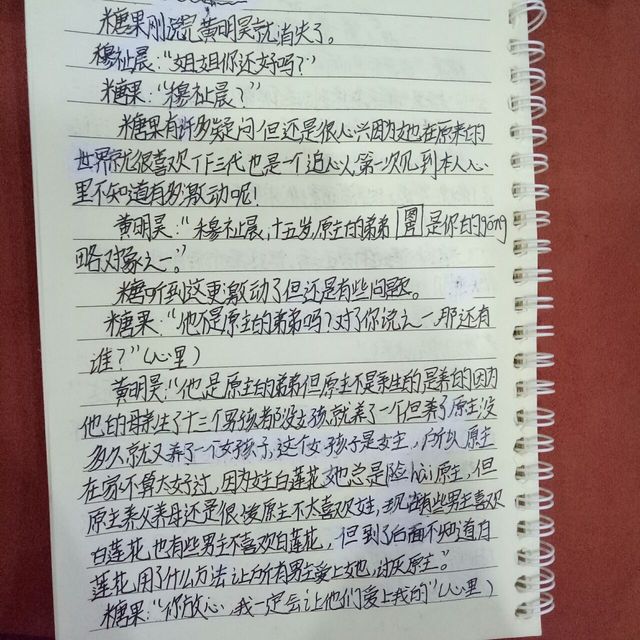 糖果刚说完黄明昊就消失了。
穆祉晨："姐姐你还好吗？"
糖果："穆祉晨？"
糖果有许多疑问但还是很心兴因为她在原来的
世界就很喜欢TF三代也是一个追心人第一次见到本人心
里不知道有多激动呢！
黄明昊："穆祉晨，十五岁，原主的弟弟 是你的gong
略对象之一。"
糖听到这更激动了但还是有些问题。
糖果："他不是原主的弟弟吗？对了你说之一那还有
谁？"（心里）
黄明昊："他是原主的弟弟但原主不是亲生的是养的因为
他的母亲生了十三个男孩都没女孩就养了一个但养了原主没
多久就又养了一个女孩子，这个女孩子是女主，所以原主
在家不算太好过，因为女主白莲花她总是险hài原主，但
原主养父养母还是很爱原主不太喜欢女主，现在有些男主喜欢
白莲花也有些男主不喜欢白莲花，但到了后面不知道白
莲花用了什么方法让所有男主爱上她，讨厌原主。"
糖果："你放心，我一定会让他们爱上我的"（心里）